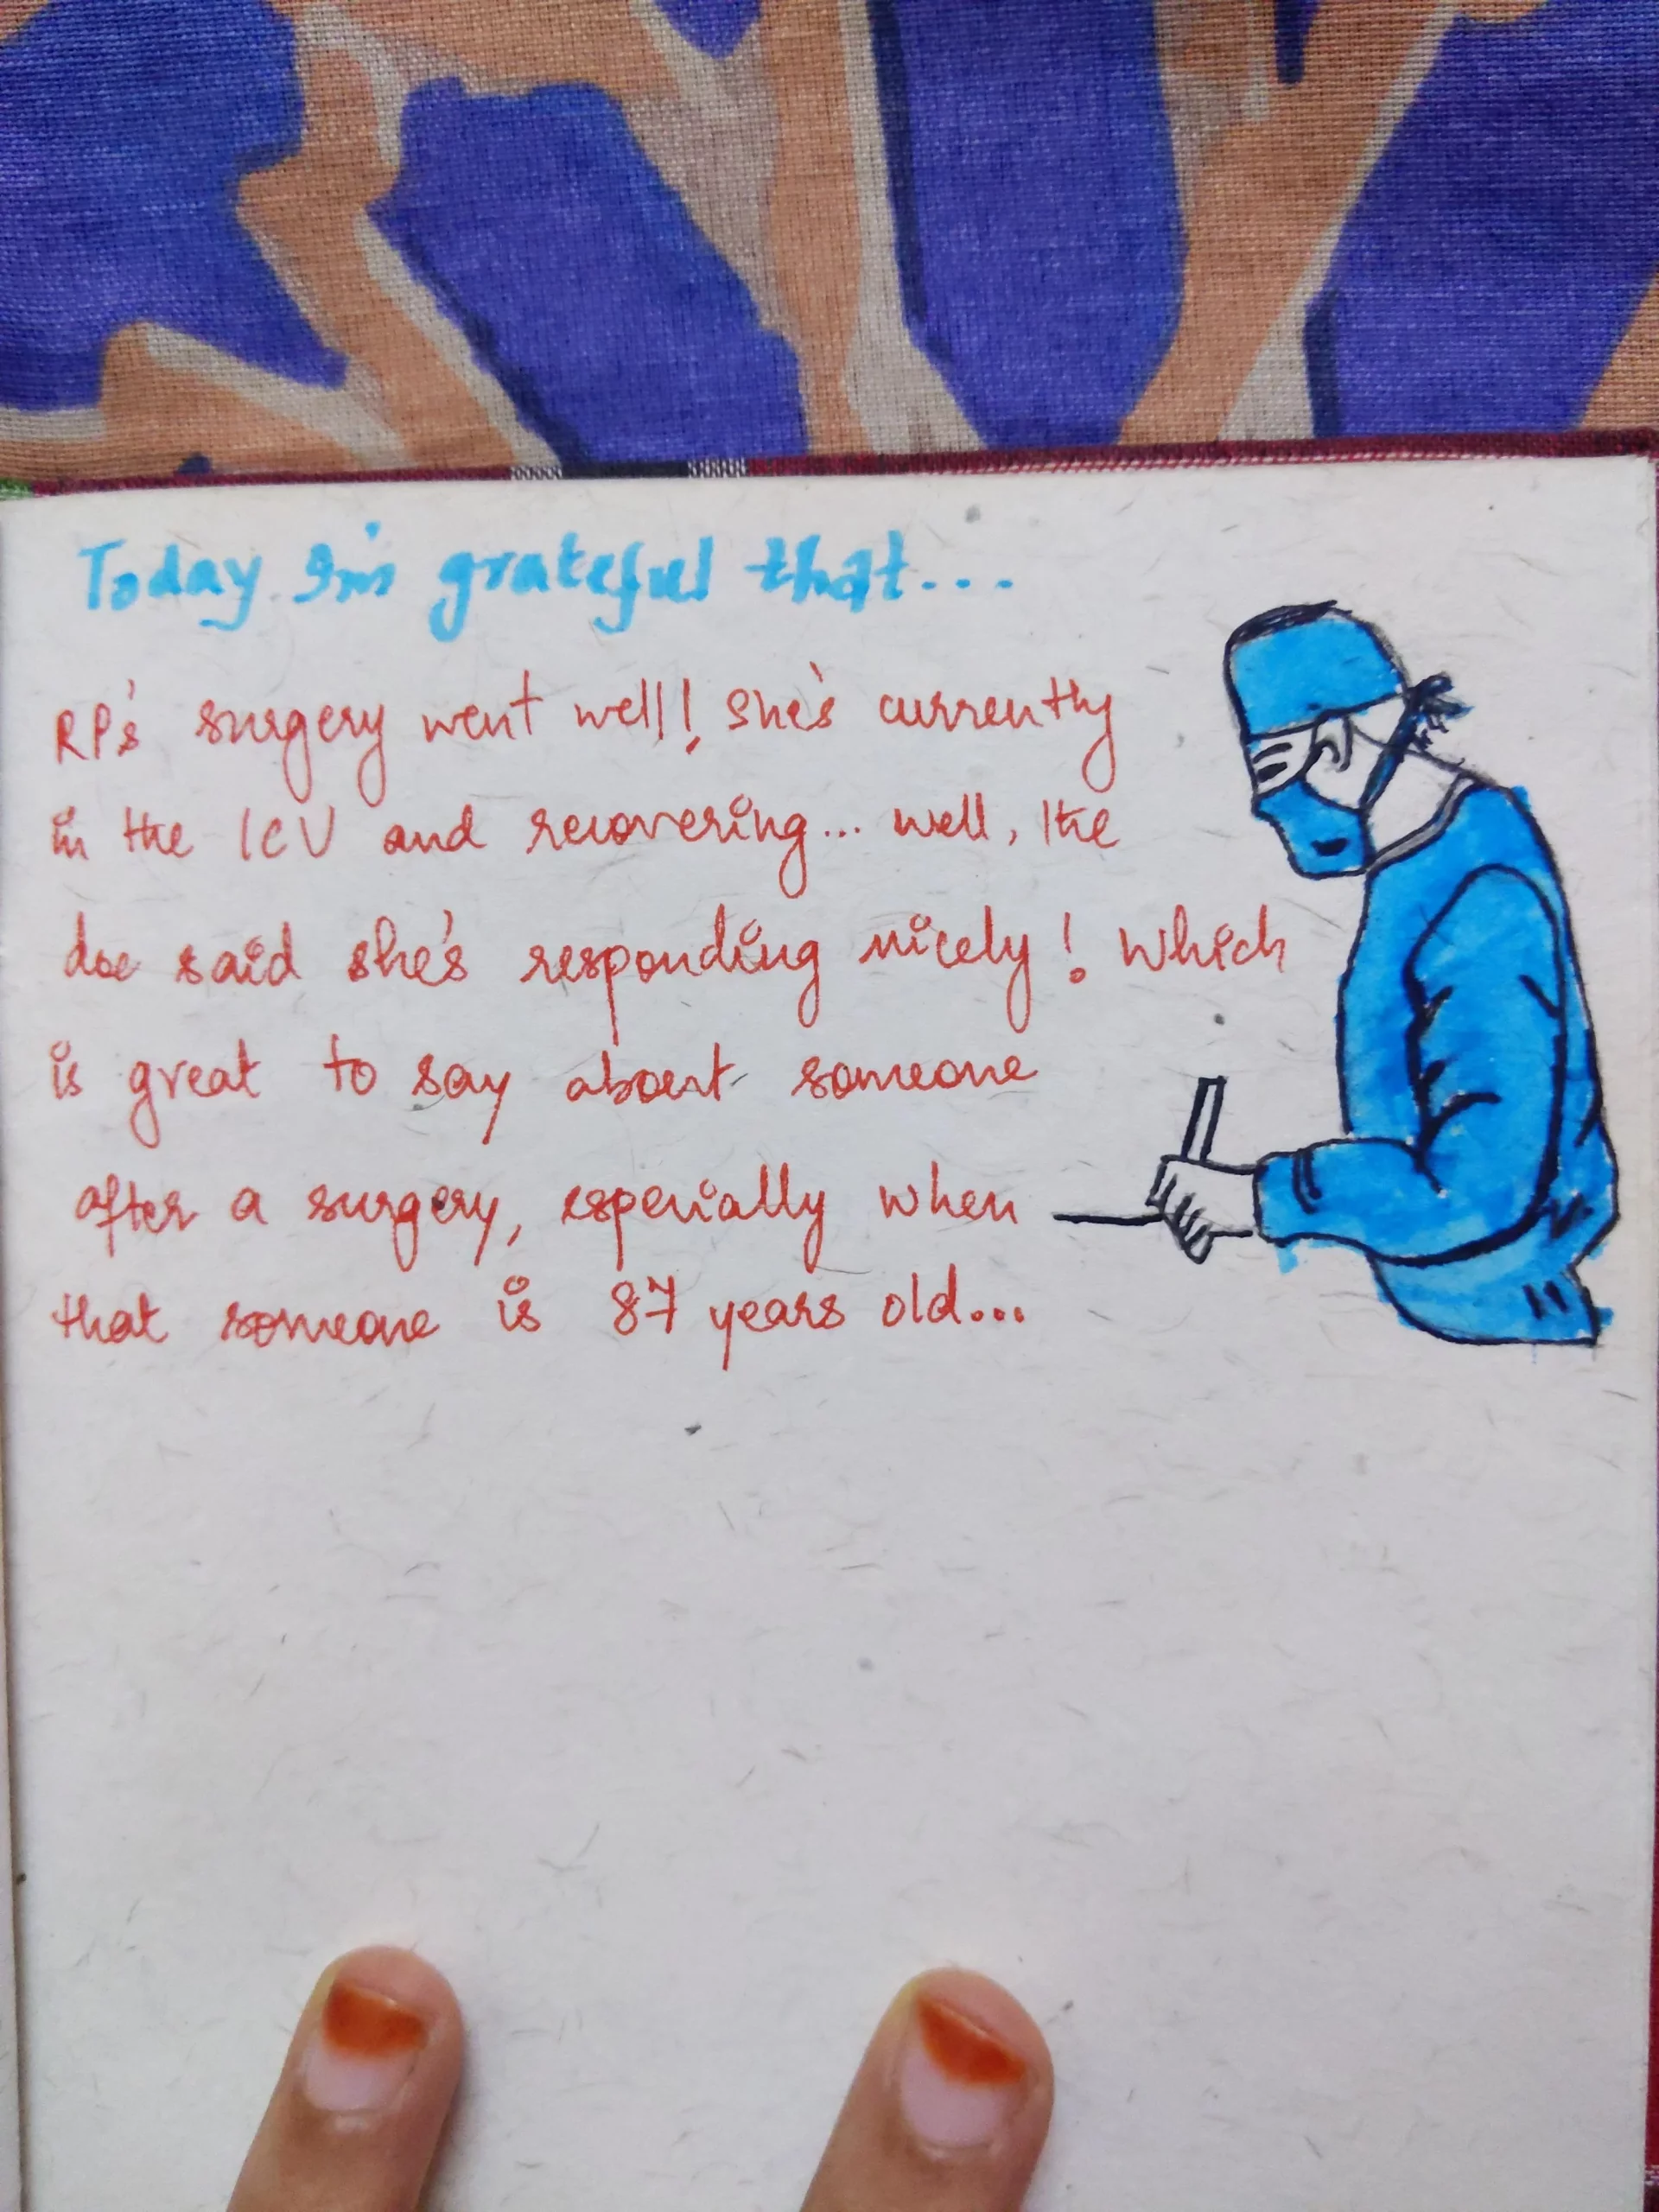 Today I'm grateful that...
RP's surgery went well! She's currently
in the ICU and recovering... well, the
doc said she's responding nicely! Which
is great to say about someone
after a surgery, especially when
that someone is 87 years old...